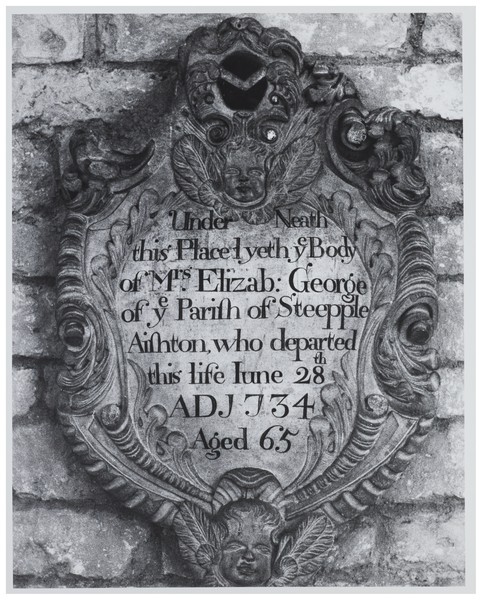 Under Neath
this Place lyeth yᵉ Body
of Mʳˢ. Elizab: George
of yᵉ Pariſh of Steepple
Aiſhton, who departed
this life Iune 28ᵗʰ
ADJ 734
Aged 65